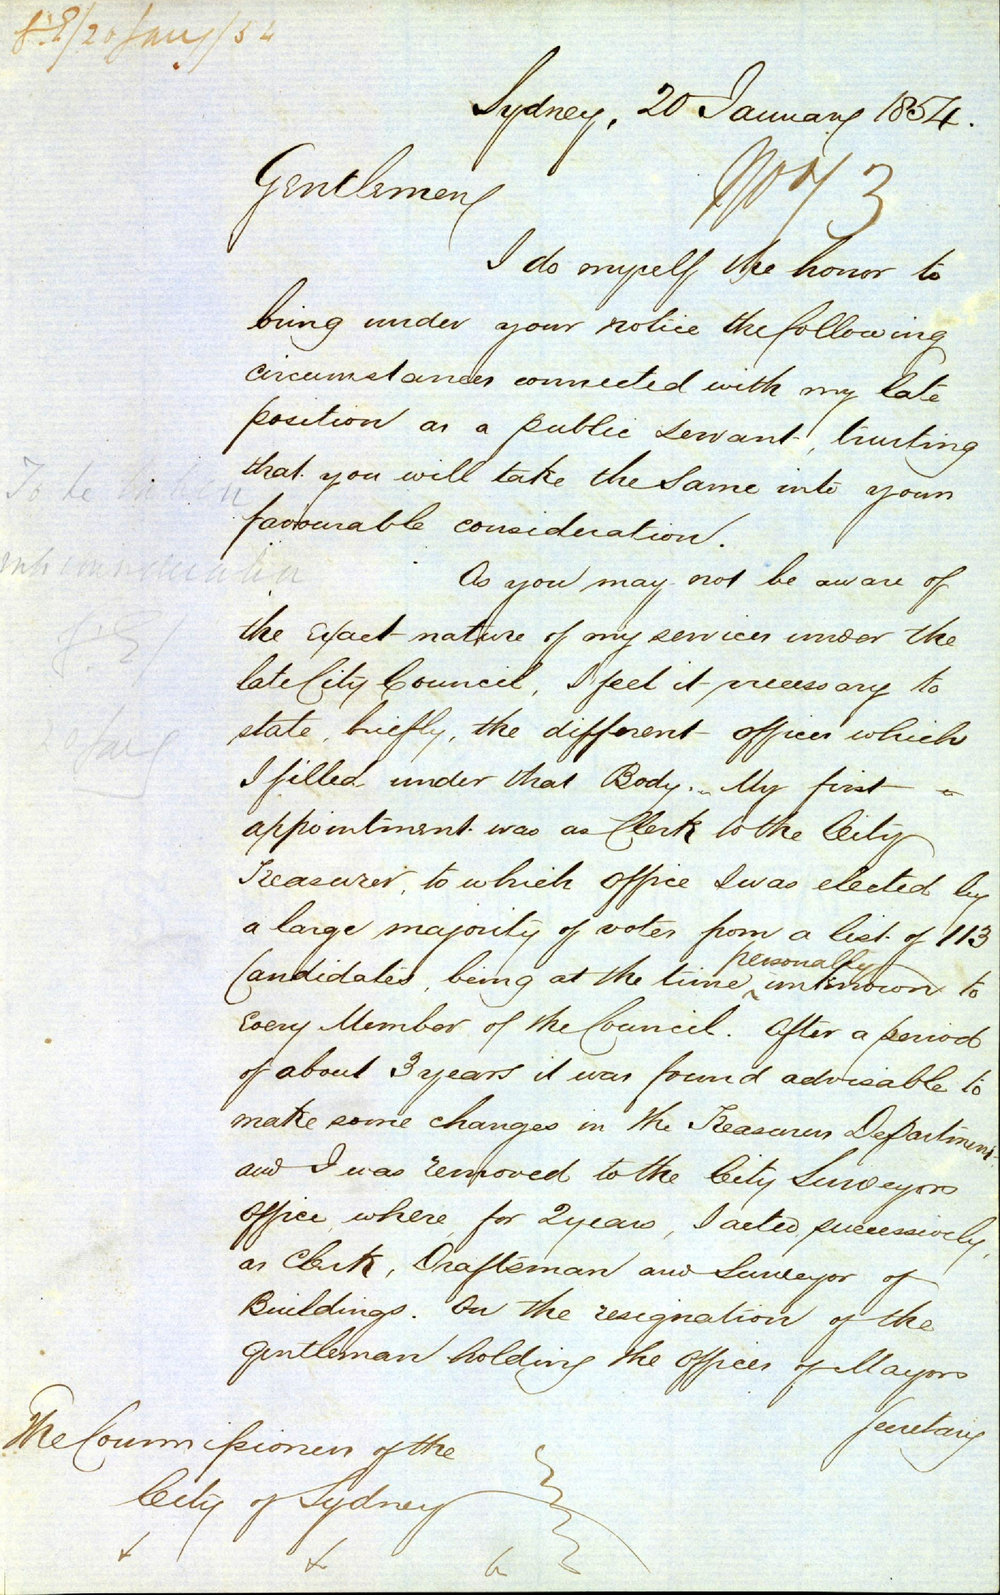 20 Jany/54
Sydney, 20 January 1854.
Gentlemen
3
I do myself the honor to
bring under your notice the following
circumstances connected with my late
position as a public servant, trusting
that you will take the same into your
favourable consideration.
To be taken
As you may not be aware of
the exact nature of my services under the
late City Council, I feel it necessary to
state, briefly, the different offices which
I filled under that Body. My first
appointment was as Clerk to the City
Treasurer, to which office I was elected by
a large majority of votes from a list of 113
personally
Candidates, being at the time ‸ unknown to
Every Member of the Council. After a period
of about 3 years it was found advisable to
make some changes in the Treasurers Department
and I was removed to the City Surveyors
Office, where, for 2 years, I acted, successively,
as Clerk, Draftsman and Surveyor of
Buildings. On the resignation of the
gentleman holding the offices of Mayors
Secretary
The Commissioners of the
City of Sydney